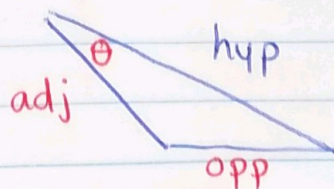 hyp
θ
adj
opp